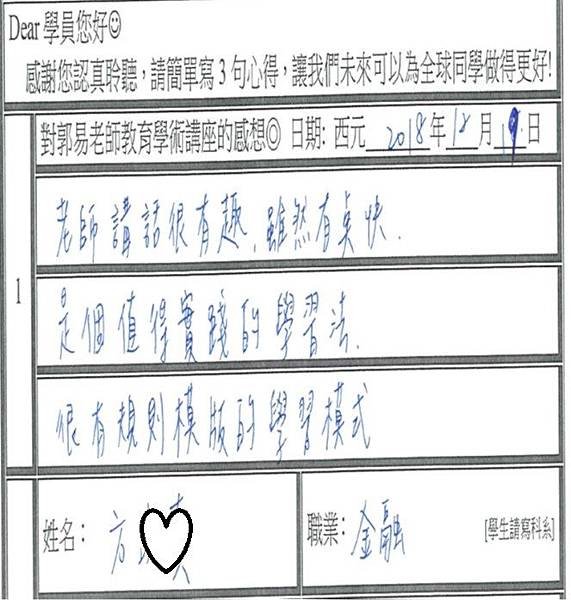 Dear 學員您好☺
感謝您認真聆聽，請簡單寫 3 句心得，讓我們未來可以為全球同學做得更好!
對郭易老師教育學術講座的感想◎ 日期: 西元 2018 年 12 月 19 日
1
老師講話很有趣，雖然有點快.
是個值得實踐的學習法.
很有規則模版的學習模式
姓名： 方
職業： 金融 [學生請寫科系]